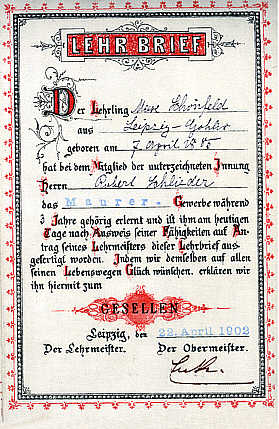 LEHR-BRIEF
Der Lehrling Max Schönfeld
aus Leipzig-Gohlis
geboren am 7. April 1885
hat bei dem Mitglied der unterzeichneten Innung
Herrn Robert Schlieder
das Maurer- Gewerbe während
3 Jahre gehörig erlernt und ist ihm am heutigen
Tage nach Ausweis seiner Fähigkeiten auf An-
trag seines Lehrmeisters dieser Lehrbrief aus-
gefertigt worden. Indem wir demselben auf allen
seinen Lebenswegen Glück wünschen, erklären wir
ihn hiermit zum
GESELLEN
Leipzig, den 22. April 1902
Der Lehrmeister. Der Obermeister.